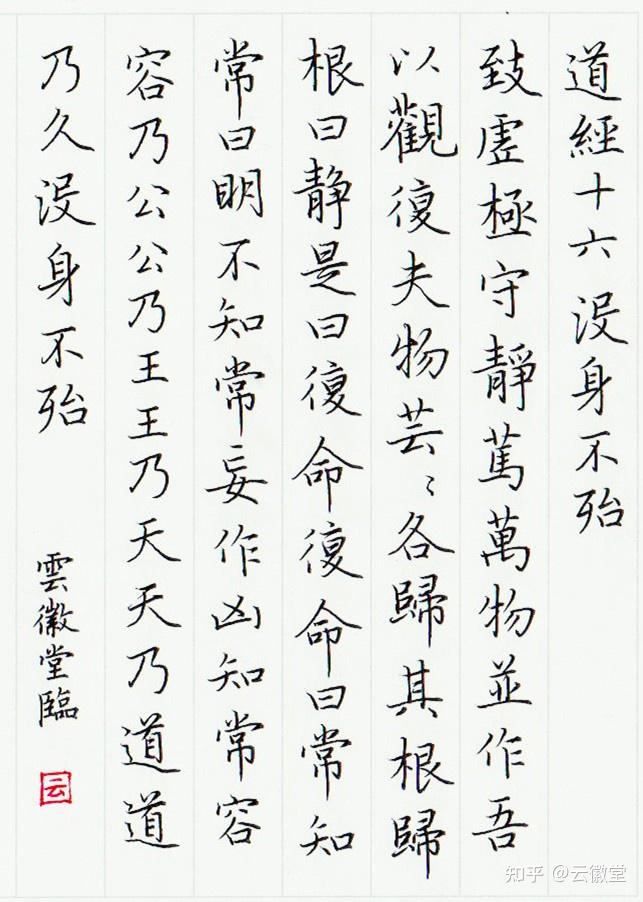 道經十六 沒身不殆
致虛極守靜篤萬物並作吾
以觀復夫物芸〻各歸其根歸
根曰靜是曰復命復命曰常知
常曰明不知常妄作凶知常容
容乃公公乃王王乃天天乃道道
乃久沒身不殆
雲徽堂臨
云
知乎 @云徽堂